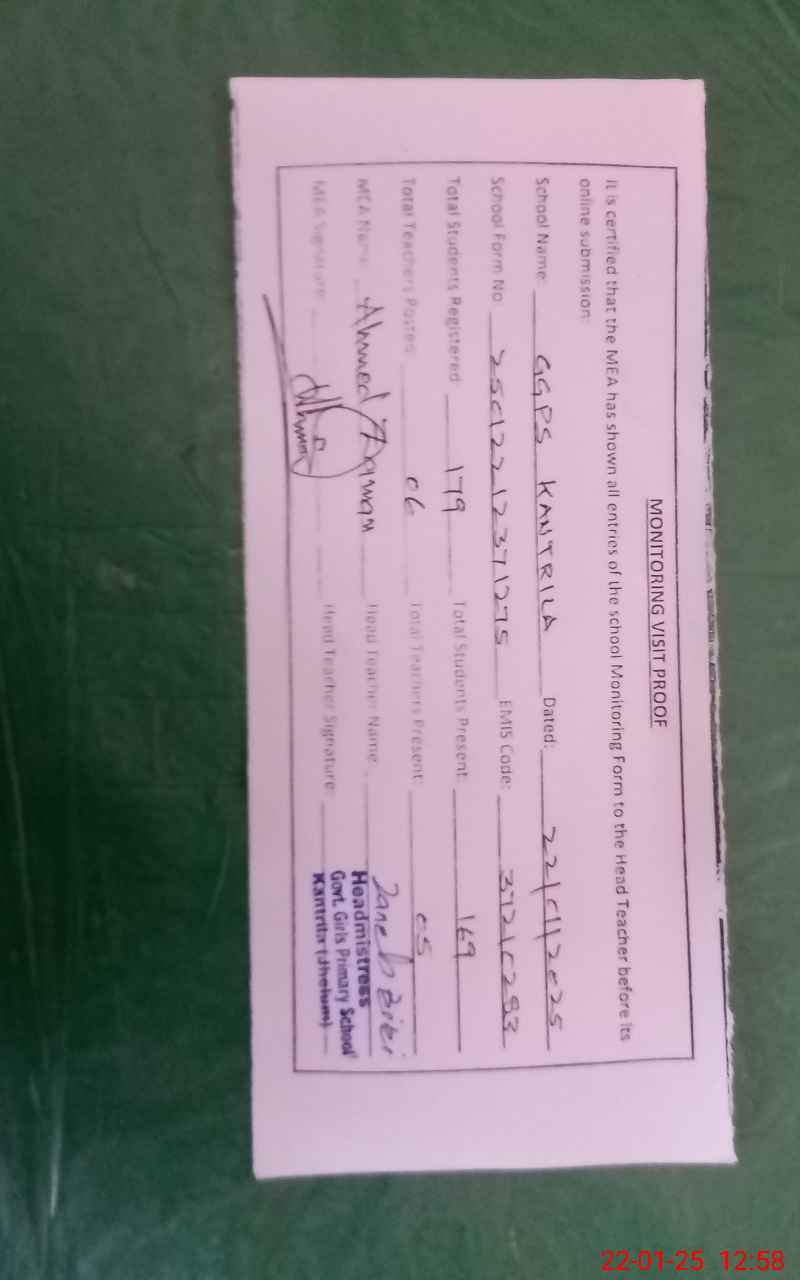 MONITORING VISIT PROOF
It is certified that the MEA has shown all entries of the school Monitoring Form to the Head Teacher before its
online submission:
School Name: GGPS KANTRILA Dated: 22/01/2025
School Form No 25012212371275 EMIS Code: 37210293
Total Students Registered 179 Total Students Present: 169
Total Teachers Posted 06 Total Teachers Present: 05
MEA Name: Ahmed Awan Head Teacher Name Zaneb Bibi
MEA Signature: Head Teacher Signature:
Headmistress
Govt. Girls Primary School
Kantrila (Jhelum)
22-01-25 12:58